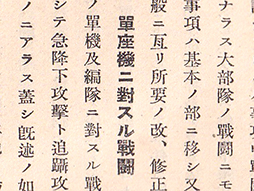 ナラス大部隊ノ戰鬪ニモ
事項ハ基本ノ部ニ移シ又
般ニ亙リ所要ノ改、修正
單座機ニ對スル戰鬪
ノ單機及編隊ニ對スル戰
シテ急降下攻擊ト追躡攻
ノニアラス蓋シ既述ノ如